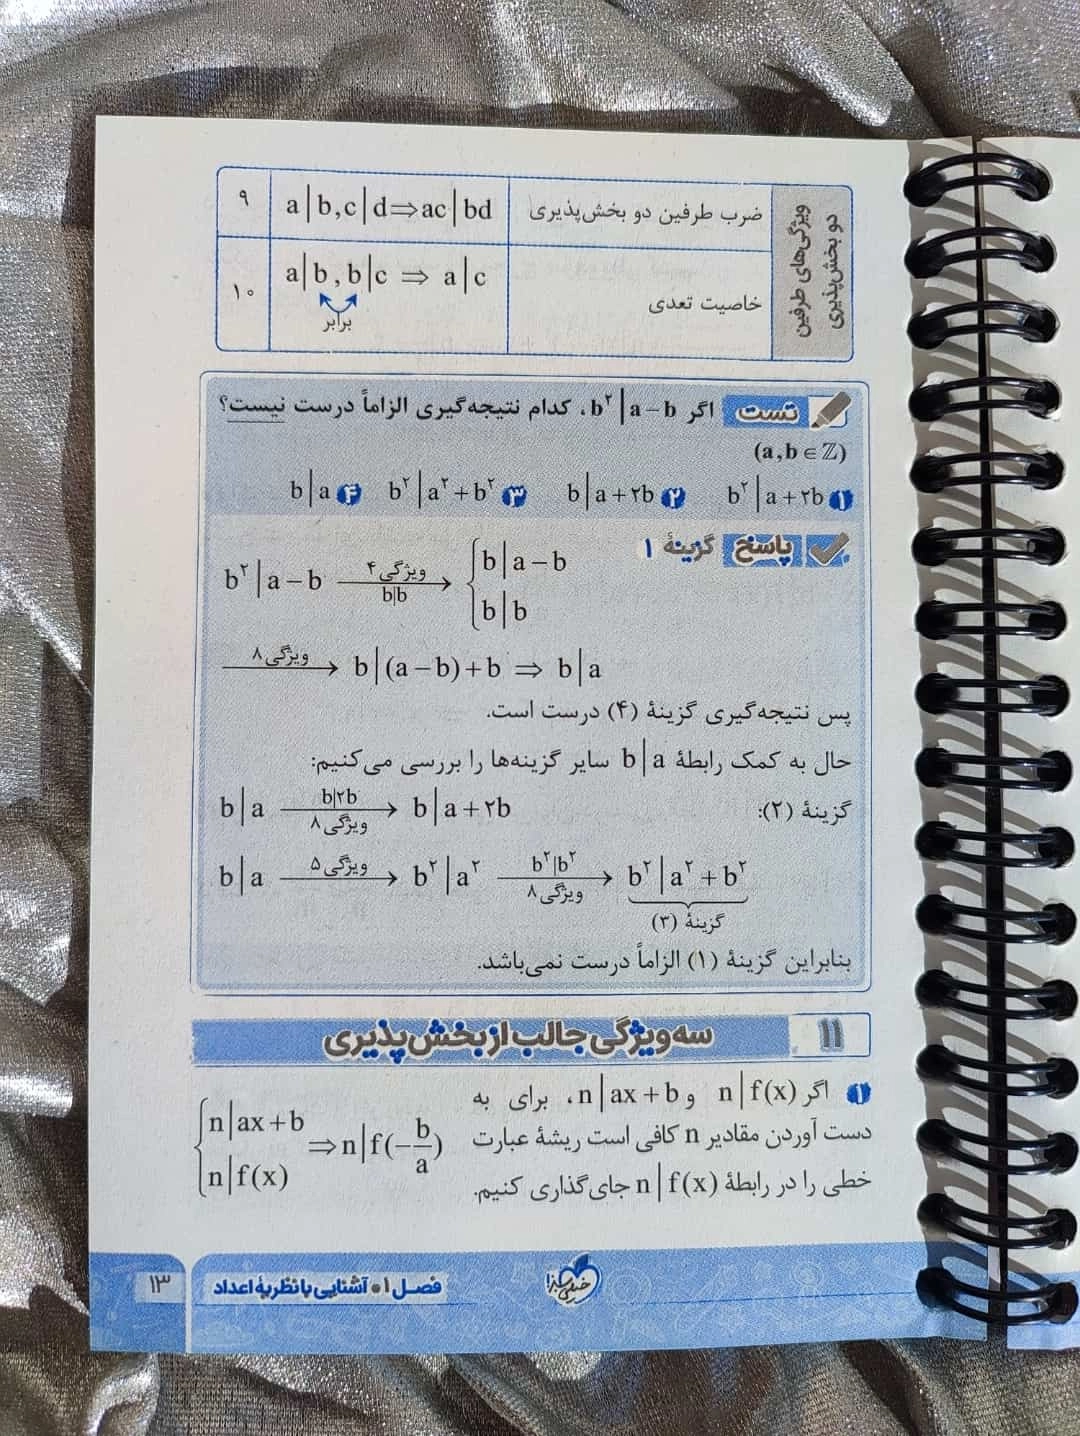 ویژگی‌های طرفین دو بخش‌پذیری
ضرب طرفین دو بخش‌پذیری a|b,c|d⇒ac|bd ۹
خاصیت تعدی a|b,b|c ⇒ a|c ۱۰
برابر
تست اگر b²|a−b، کدام نتیجه‌گیری الزاماً درست نیست؟
(a,b∈ℤ)
۱ b²|a+۲b ۲ b|a+۲b ۳ b²|a²+b² ۴ b|a
پاسخ گزینهٔ ۱
b²|a−b ویژگی ۴ b|b → { b|a−b
b|b
ویژگی ۸ → b|(a−b)+b ⇒ b|a
پس نتیجه‌گیری گزینهٔ (۴) درست است.
حال به کمک رابطهٔ b|a سایر گزینه‌ها را بررسی می‌کنیم:
گزینهٔ (۲): b|a b|۲b ویژگی ۸ → b|a+۲b
b|a ویژگی ۵ → b²|a² b²|b² ویژگی ۸ → b²|a²+b²
گزینهٔ (۳)
بنابراین گزینهٔ (۱) الزاماً درست نمی‌باشد.
۱۱ سه ویژگی جالب از بخش‌پذیری
۱ اگر n|f(x) و n|ax+b، برای به
دست آوردن مقادیر n کافی است ریشهٔ عبارت
خطی را در رابطهٔ n|f(x) جای‌گذاری کنیم.
{ n|ax+b
n|f(x) ⇒ n|f(−b/a)
خیلی سبز
فصل ۱ • آشنایی با نظریهٔ اعداد
۱۳